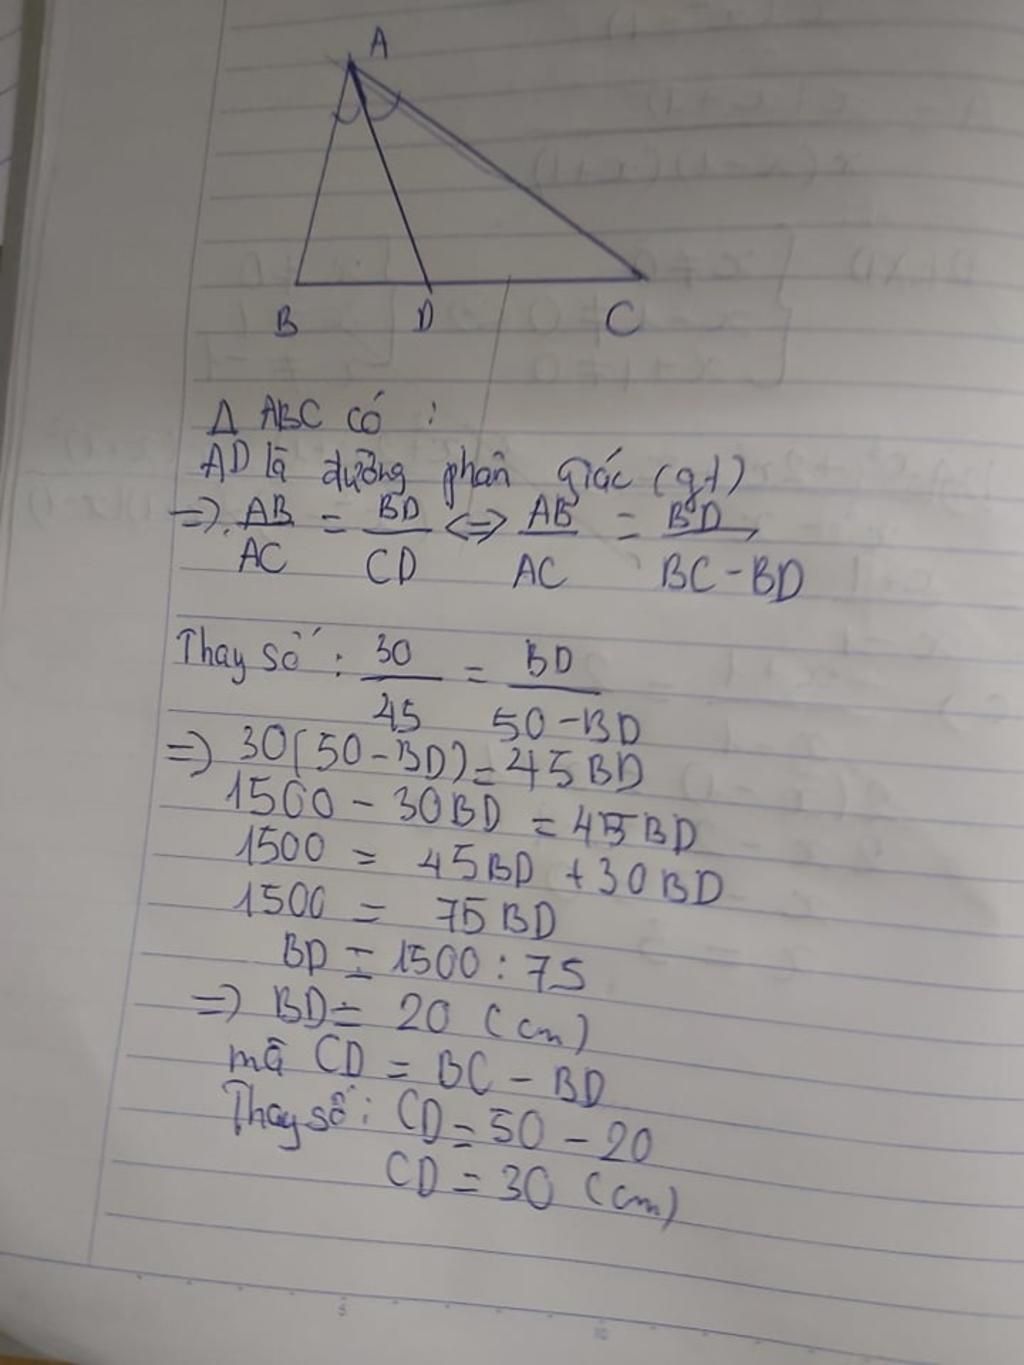 A
B D C
Δ ABC có :
AD là đường phân giác (gt)
=> AB/AC = BD/CD <=> AB/AC = BD/BC - BD
Thay số : 30/45 = BD/50 - BD
=> 30(50 - BD) = 45BD
1500 - 30BD = 45BD
1500 = 45BD + 30BD
1500 = 75BD
BD = 1500 : 75
=> BD = 20 (cm)
mà CD = BC - BD
Thay số : CD = 50 - 20
CD = 30 (cm)
5 10